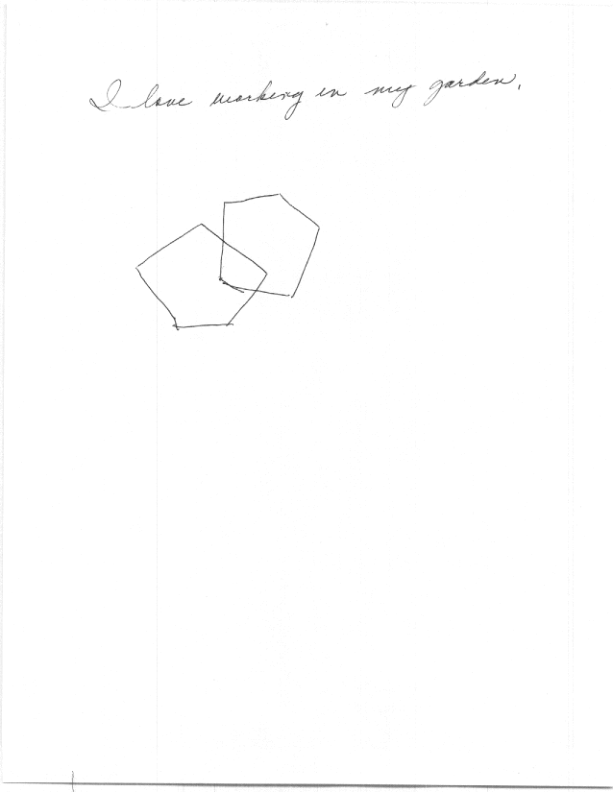 I love working in my garden.